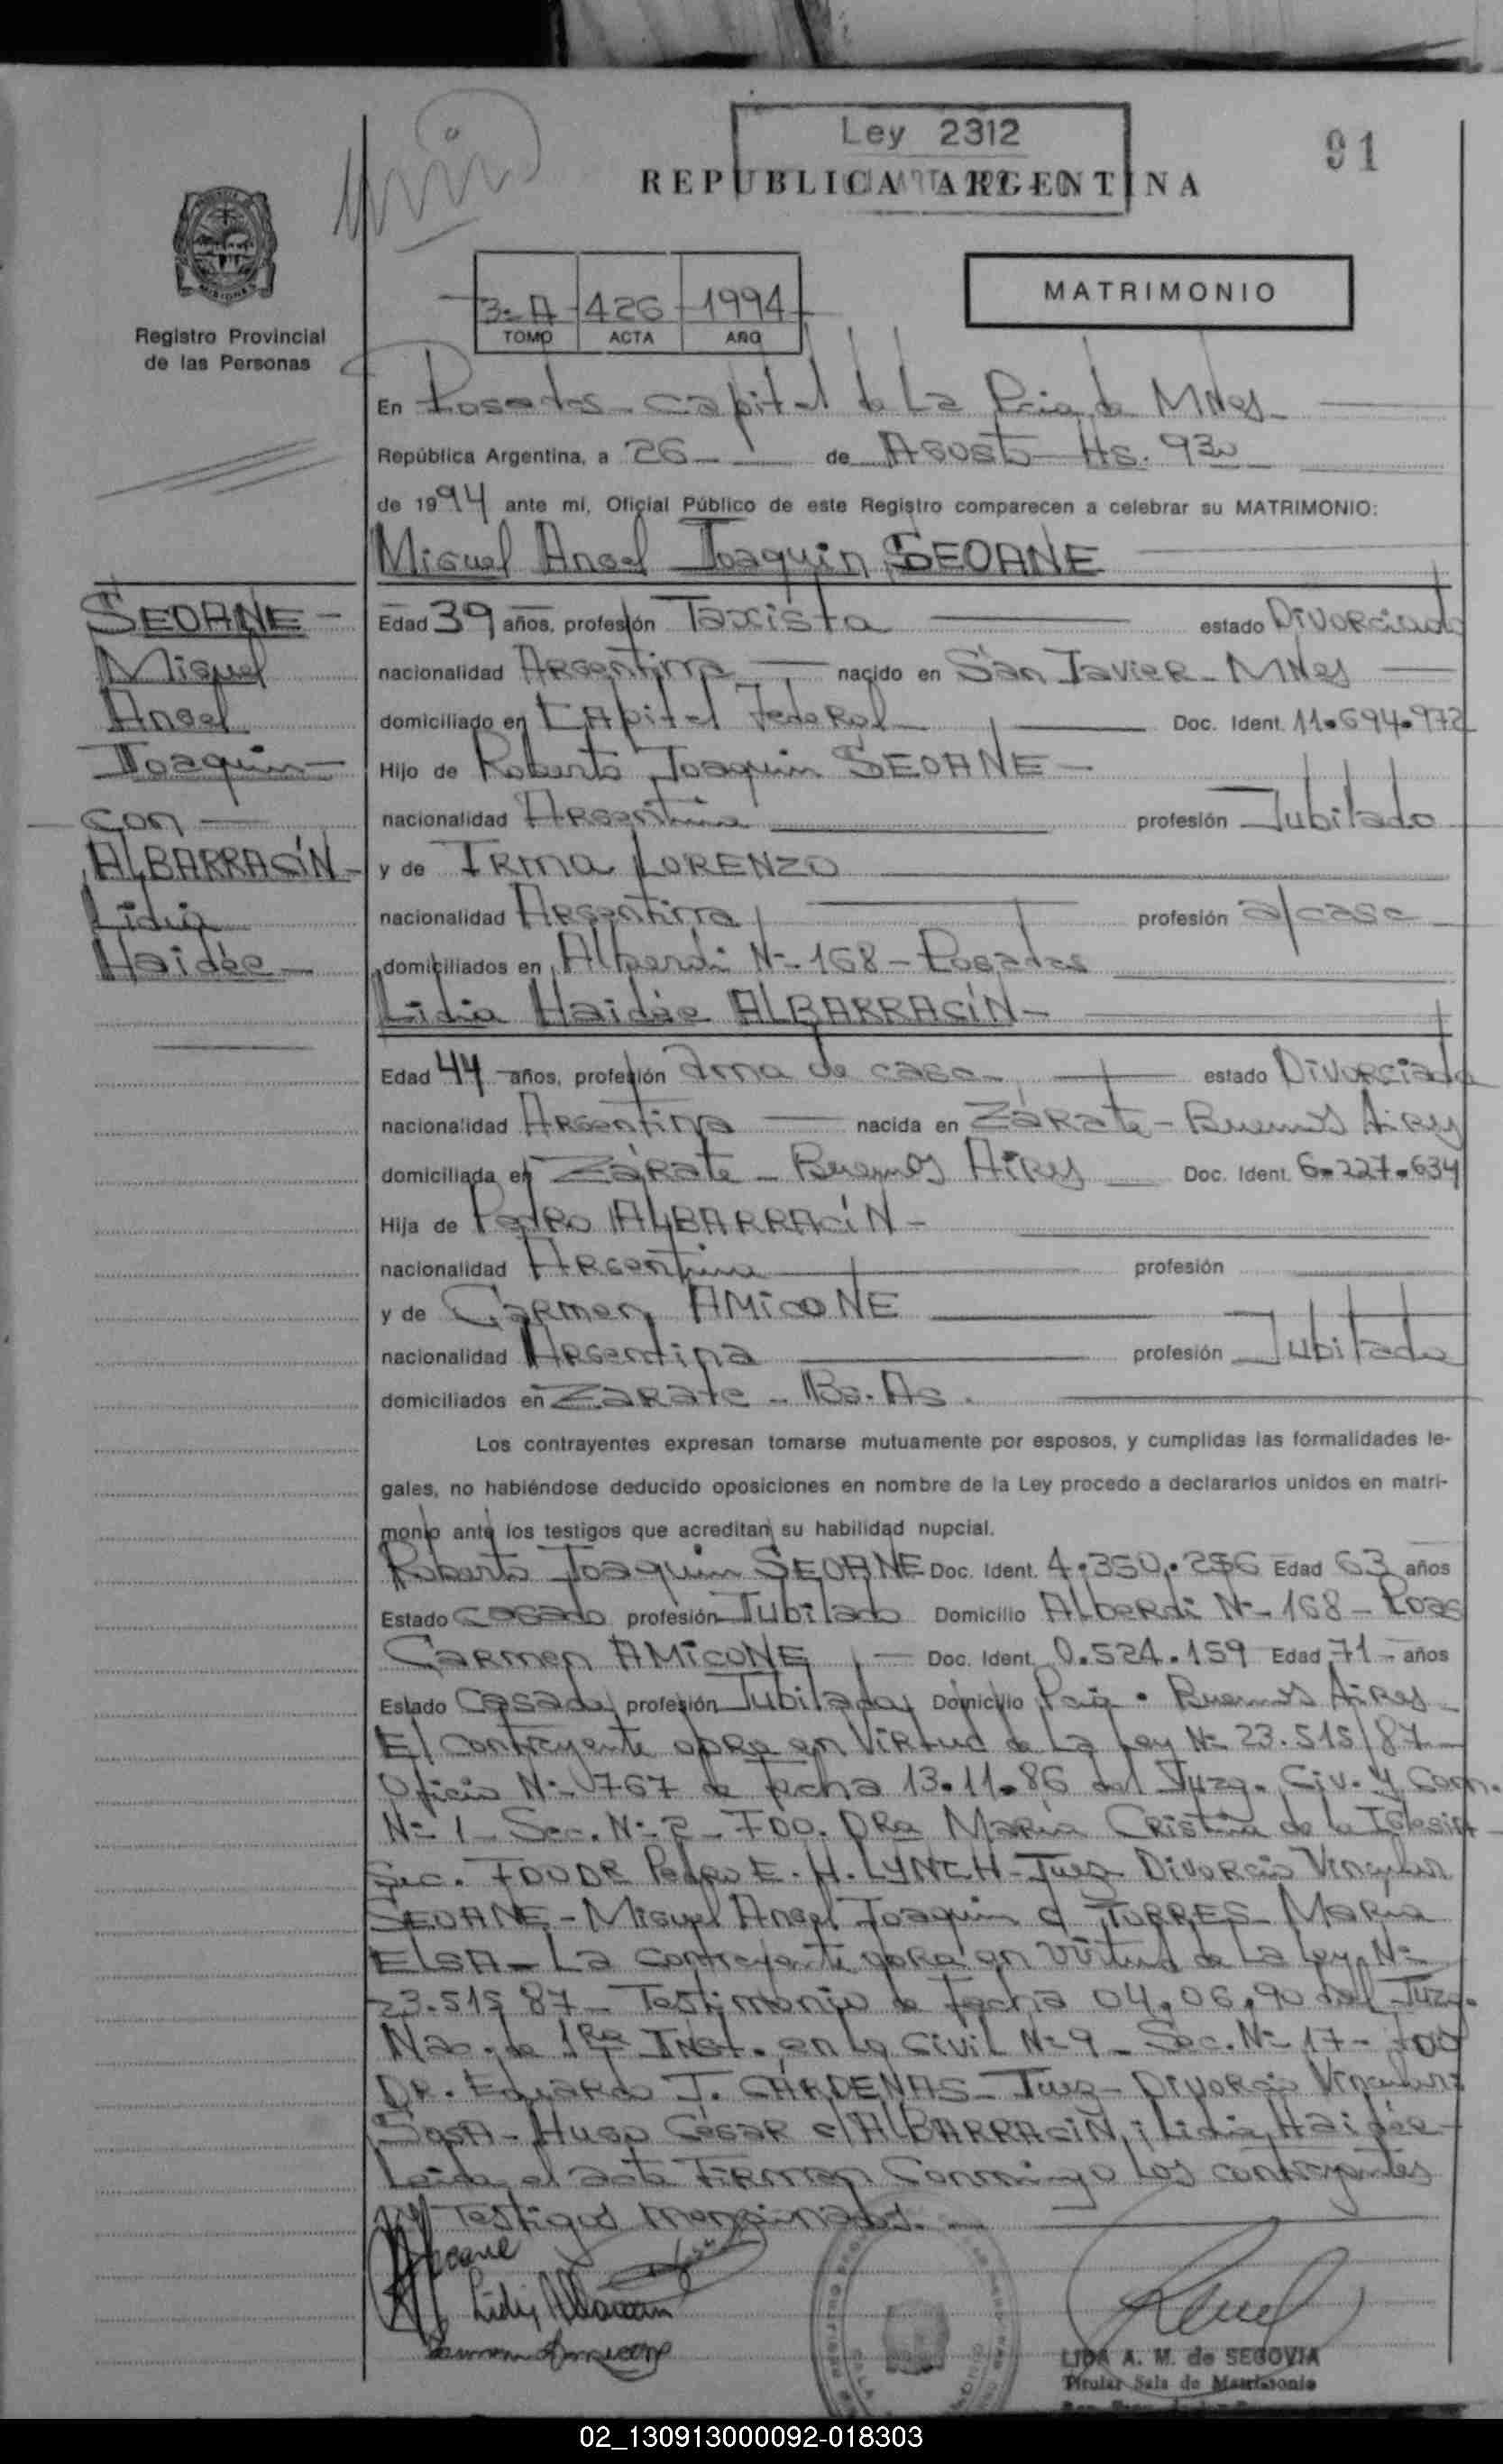 Ley 2312
91
REPUBLICA ARGENTINA
MISIONES
Registro Provincial
de las Personas
3-A 426 1994
TOMO ACTA AÑO
MATRIMONIO
En Posadas - Capital de La Pcia de MNes -
República Argentina, a 26 - de Agosto Hs. 930
de 1994 ante mí, Oficial Público de este Registro comparecen a celebrar su MATRIMONIO:
Miguel Angel Joaquin SEOANE
SEOANE -
Miguel
Angel
Joaquin -
con -
ALBARRACíN -
Lidia
Haidée -
Edad 39 años, profesión Taxista estado Divorciado
nacionalidad Argentina nacido en San Javier - MNes
domiciliado en CApital Federal Doc. Ident. 11.694.972
Hijo de Roberto Joaquin SEOANE -
nacionalidad Argentina profesión Jubilado
y de IRma LORENZO
nacionalidad Argentina profesión a/casa
domiciliados en Alberdi Nº 168 - Posadas
Lidia Haidée ALBARRACíN -
Edad 44 años, profesión Ama de casa estado Divorciada
nacionalidad Argentina nacida en Zárate - Buenos Aires
domiciliada en Zárate - Buenos Aires Doc. Ident. 6.227.634
Hija de Pedro ALBARRACíN -
nacionalidad Argentina profesión
y de Carmen AMicONE
nacionalidad Argentina profesión Jubilada
domiciliados en Zarate - Bs. As.
Los contrayentes expresan tomarse mutuamente por esposos, y cumplidas las formalidades le-
gales, no habiéndose deducido oposiciones en nombre de la Ley procedo a declararlos unidos en matri-
monio ante los testigos que acreditan su habilidad nupcial.
Roberto Joaquin SEOANE Doc. Ident. 4.350.256 Edad 63 años
Estado Casado profesión Jubilado Domicilio Alberdi Nº 168 - Pdas
Carmen AMicONE - Doc. Ident. 0.524.159 Edad 71 - años
Estado Casada profesión Jubilada Domicilio Pcia. Buenos Aires -
El contrayente obra en Virtud de La Ley Nº 23.515/87 -
Oficio Nº 767 de fecha 13.11.86 del Juzg. Civ. y Com.
Nº 1 - Sec. Nº 2 - FDO. DRa María Cristina de la Iglesia -
Sec. FDO DR Pedro E. H. LYNCH - Juez - Divorcio Vincular
SEOANE - Miguel Angel Joaquin c/ TORRES - María
ELSA - La contrayente obra en virtud de La Ley Nº
23.515 87 - Testimonio de fecha 04.06.90 del Juzg.
Nac. de 1Ra Inst. en lo Civil Nº 9 - Sec. Nº 17 - FDO
DR. Eduardo J. CÁRDENAS - Juez - Divorcio Vincular:
SosA - Hugo César c/ ALBARRACiN, Lidia Haidée -
Leida el acta FiRman Conmigo Los contrayentes
y Testigos mencionados. -
Seoane
Lidia Albarracin
Carmen Amicone
LIDA A. M. de SEGOVIA
Titular Sala de Matrimonio
02_130913000092-018303